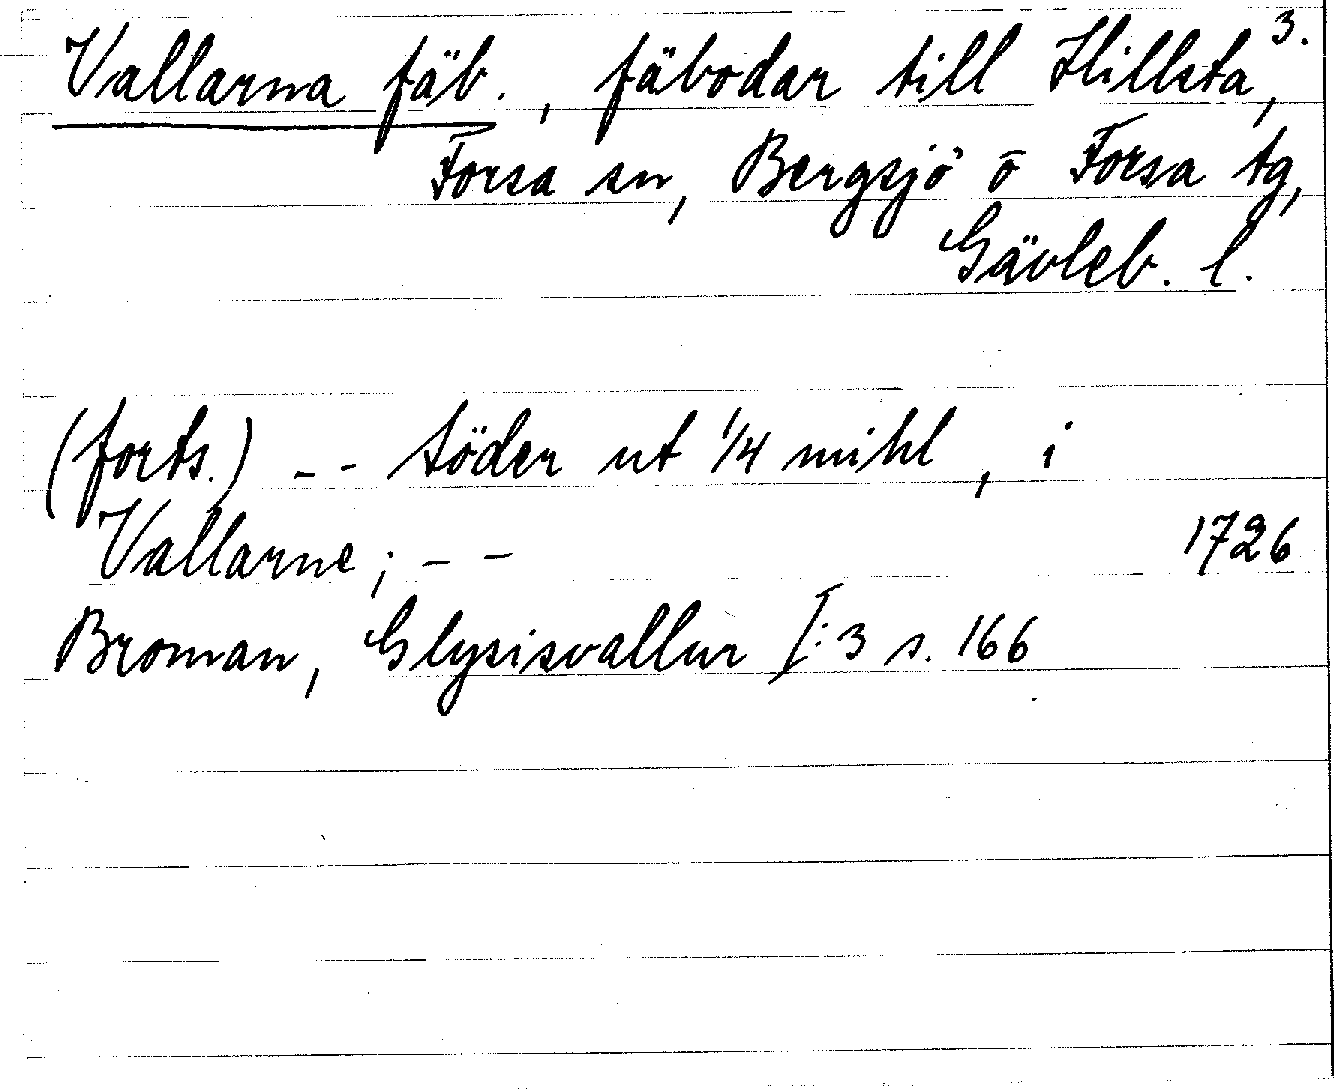 3.
Vallarna fäb., fäbodar till Hillsta,
Forsa sn, Bergsjö o Forsa tg,
Gävleb. l.
(forts.) -- söder ut 1/4 mihl, i
Vallarne; -- 1726
Broman, Glysisvallur I:3 s. 166